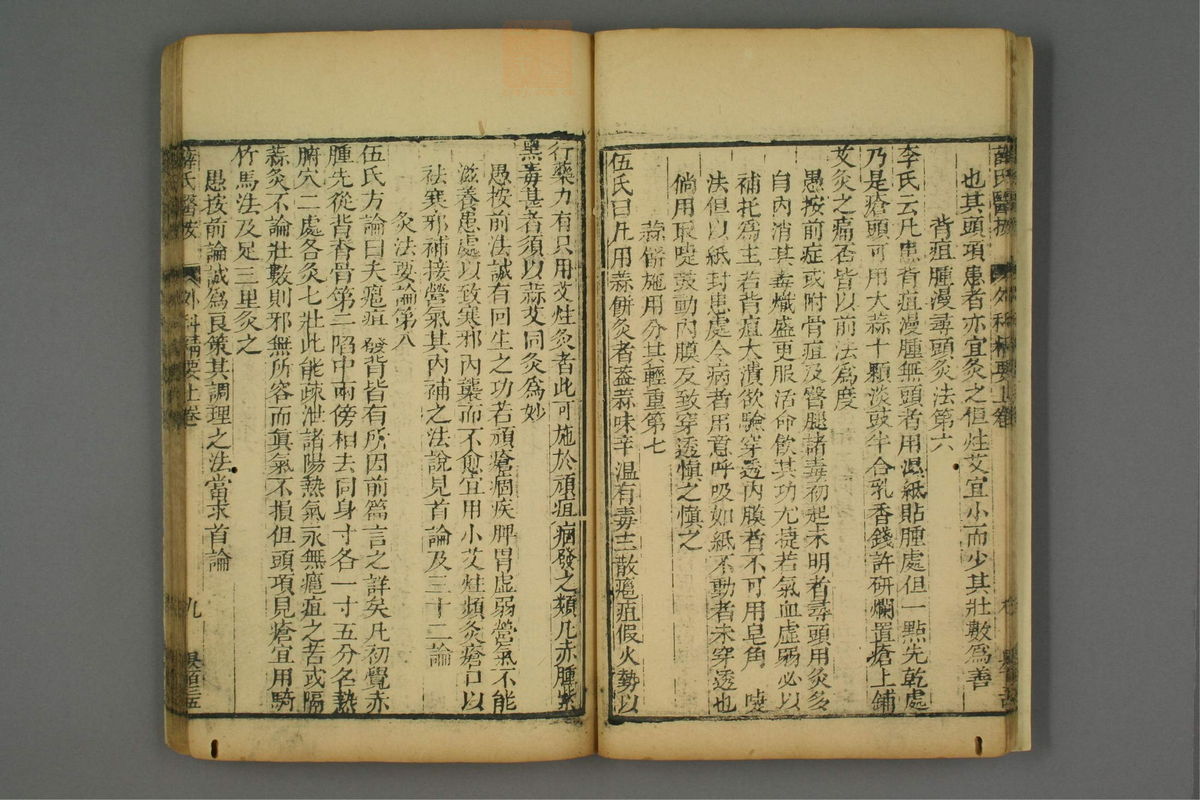 薛氏醫按 外科精要上卷
也其頭項患者亦宜灸之但炷艾宜小而少其壯數爲善
背疽腫漫尋頭灸法第六
李氏云凡患背疽漫腫無頭者用濕紙貼腫處但一點先乾處
乃是瘡頭可用大蒜十顆淡豉半合乳香錢許研爛置瘡上鋪
艾灸之痛否皆以前法爲度
愚按前症或附骨疽及臀腿諸毒初起未明者尋頭用灸多
自內消其毒熾盛更服活命飲其功尤捷若氣血虛弱必以
補托爲主若背疽大潰欲驗穿透內膜者不可用皂角
法但以紙封患處令病者用意呼吸如紙不動者未穿透也
倘用取嚏鼓動內膜反致穿透愼之愼之
蒜餅施用分其輕重第七
伍氏曰凡用蒜餅灸者蓋蒜味辛温有毒主散癰疽假火勢以
行藥力有只用艾炷灸者此可施於頑疽痼發之類凡赤腫紫
黑毒甚者須以蒜艾同灸爲妙
愚按前法誠有回生之功若頑瘡痼疾脾胃虛弱營氣不能
滋養患處以致寒邪內襲而不愈宜用小艾炷頻灸瘡口以
袪寒邪補接營氣其內補之法說見首論及三十二論
灸法要論第八
伍氏方論曰夫癰疽發背皆有所因前篇言之詳矣凡初覺赤
腫先從背脊骨第二陷中兩傍相去同身寸各一寸五分名熱
腑穴二處各灸七壯此能疎泄諸陽熱氣永無癰疽之苦或隔
蒜灸不論壯數則邪無所容而眞氣不損但頭項見瘡宜用騎
竹馬法及足三里灸之
愚按前論誠爲良策其調理之法當求首論
薛氏醫按 外科精要上卷 九